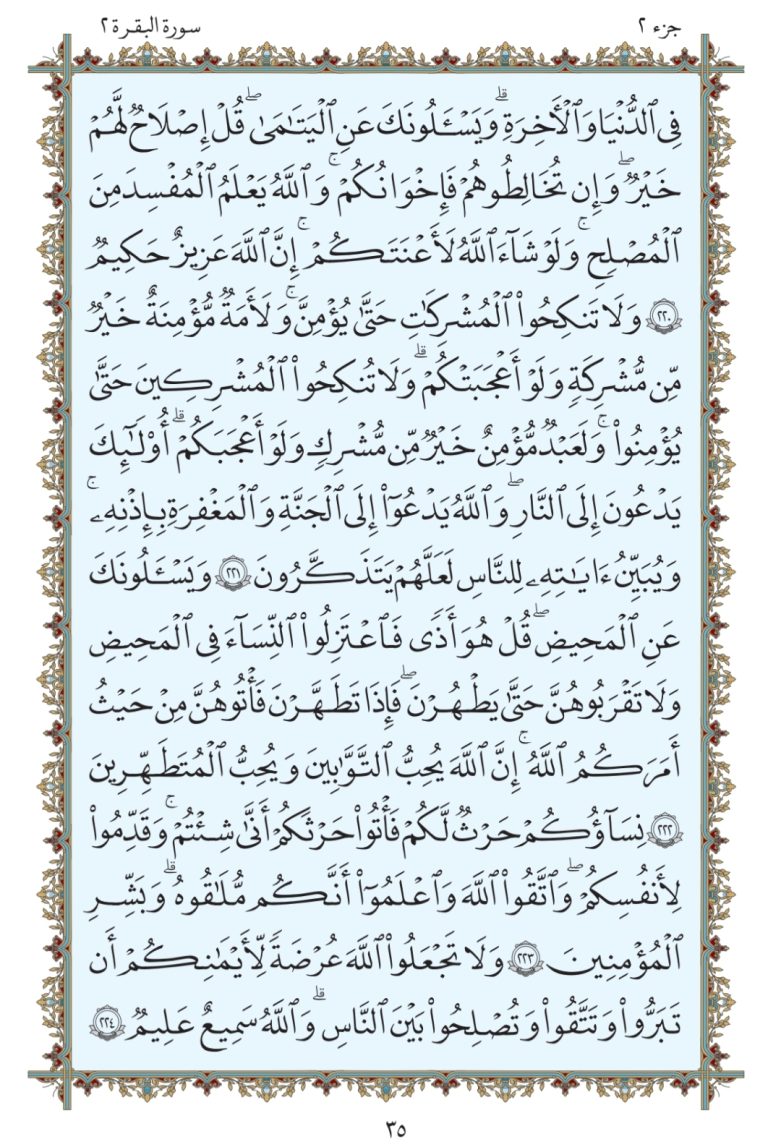 جزء ٢
سورة البقرة ٢
فِى ٱلدُّنْيَا وَٱلْأَخِرَةِ ۗ وَيَسْـَٔلُونَكَ عَنِ ٱلْيَتَـٰمَىٰ ۖ قُلْ إِصْلَاحٌ لَّهُمْ
خَيْرٌ ۖ وَإِن تُخَالِطُوهُمْ فَإِخْوَٰنُكُمْ ۚ وَٱللَّهُ يَعْلَمُ ٱلْمُفْسِدَ مِنَ
ٱلْمُصْلِحِ ۚ وَلَوْ شَآءَ ٱللَّهُ لَأَعْنَتَكُمْ ۚ إِنَّ ٱللَّهَ عَزِيزٌ حَكِيمٌ
﴿٢٢٠﴾ وَلَا تَنكِحُوا۟ ٱلْمُشْرِكَـٰتِ حَتَّىٰ يُؤْمِنَّ ۚ وَلَأَمَةٌ مُّؤْمِنَةٌ خَيْرٌ
مِّن مُّشْرِكَةٍ وَلَوْ أَعْجَبَتْكُمْ ۗ وَلَا تُنكِحُوا۟ ٱلْمُشْرِكِينَ حَتَّىٰ
يُؤْمِنُوا۟ ۚ وَلَعَبْدٌ مُّؤْمِنٌ خَيْرٌ مِّن مُّشْرِكٍ وَلَوْ أَعْجَبَكُمْ ۗ أُو۟لَـٰٓئِكَ
يَدْعُونَ إِلَى ٱلنَّارِ ۖ وَٱللَّهُ يَدْعُوٓا۟ إِلَى ٱلْجَنَّةِ وَٱلْمَغْفِرَةِ بِإِذْنِهِۦ ۚ
وَيُبَيِّنُ ءَايَـٰتِهِۦ لِلنَّاسِ لَعَلَّهُمْ يَتَذَكَّرُونَ ﴿٢٢١﴾ وَيَسْـَٔلُونَكَ
عَنِ ٱلْمَحِيضِ ۖ قُلْ هُوَ أَذًى فَٱعْتَزِلُوا۟ ٱلنِّسَآءَ فِى ٱلْمَحِيضِ
وَلَا تَقْرَبُوهُنَّ حَتَّىٰ يَطْهُرْنَ ۖ فَإِذَا تَطَهَّرْنَ فَأْتُوهُنَّ مِنْ حَيْثُ
أَمَرَكُمُ ٱللَّهُ ۚ إِنَّ ٱللَّهَ يُحِبُّ ٱلتَّوَّٰبِينَ وَيُحِبُّ ٱلْمُتَطَهِّرِينَ
﴿٢٢٢﴾ نِسَآؤُكُمْ حَرْثٌ لَّكُمْ فَأْتُوا۟ حَرْثَكُمْ أَنَّىٰ شِئْتُمْ ۚ وَقَدِّمُوا۟
لِأَنفُسِكُمْ ۖ وَٱتَّقُوا۟ ٱللَّهَ وَٱعْلَمُوٓا۟ أَنَّكُم مُّلَـٰقُوهُ ۗ وَبَشِّرِ
ٱلْمُؤْمِنِينَ ﴿٢٢٣﴾ وَلَا تَجْعَلُوا۟ ٱللَّهَ عُرْضَةً لِّأَيْمَـٰنِكُمْ أَن
تَبَرُّوا۟ وَتَتَّقُوا۟ وَتُصْلِحُوا۟ بَيْنَ ٱلنَّاسِ ۗ وَٱللَّهُ سَمِيعٌ عَلِيمٌ ﴿٢٢٤﴾
٣٥